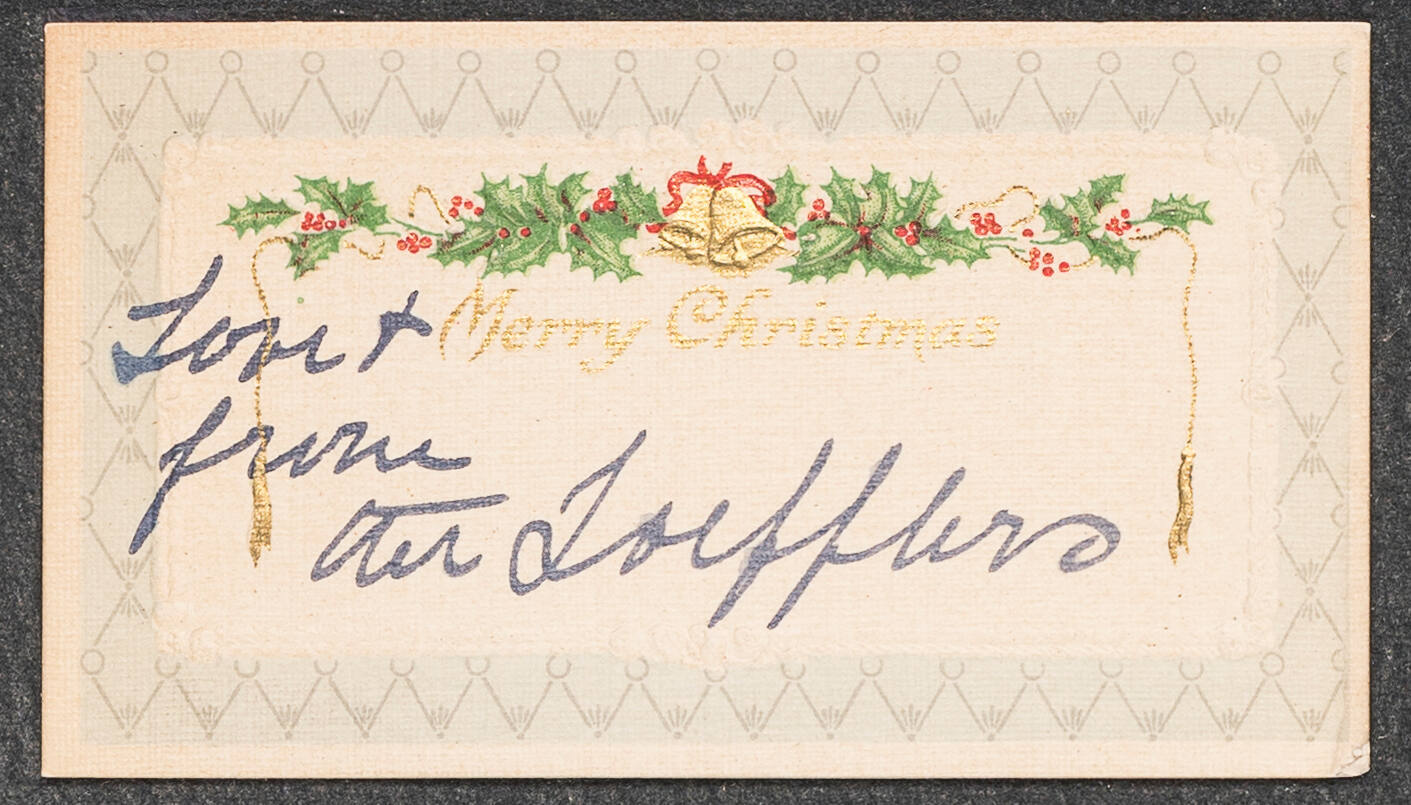 Love & Merry Christmas
from
the Loefflers